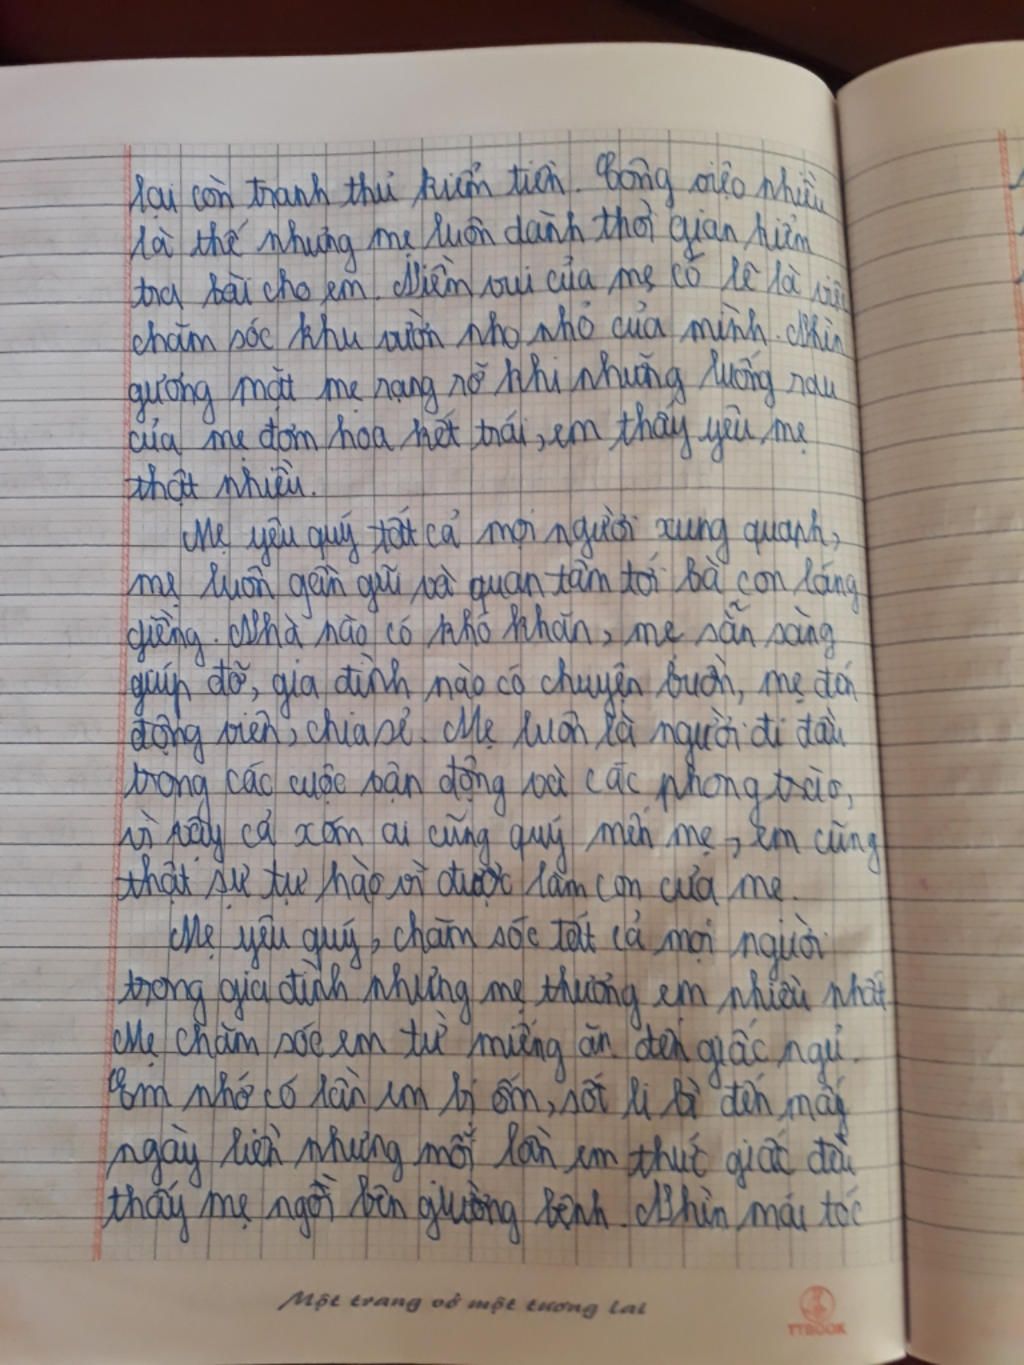 lại còn tranh thủ kiếm tiền. Công việc nhiều
là thế nhưng mẹ luôn dành thời gian kiểm
tra bài cho em. Niềm vui của mẹ có lẽ là việc
chăm sóc khu vườn nho nhỏ của mình. Nhìn
gương mặt mẹ rạng rỡ khi những luống rau
của mẹ đơm hoa kết trái, em thấy yêu mẹ
thật nhiều.
Mẹ yêu quý tất cả mọi người xung quanh,
mẹ luôn gần gũi và quan tâm tới bà con láng
giềng. Nhà nào có khó khăn, mẹ sẵn sàng
giúp đỡ, gia đình nào có chuyện buồn, mẹ đến
động viên, chia sẻ. Mẹ luôn là người đi đầu
trong các cuộc vận động và các phong trào,
vì vậy cả xóm ai cũng quý mến mẹ, em cũng
thật sự tự hào vì được làm con của mẹ.
Mẹ yêu quý, chăm sóc tất cả mọi người
trong gia đình nhưng mẹ thương em nhiều nhất
Mẹ chăm sóc em từ miếng ăn đến giấc ngủ.
Em nhớ có lần em bị ốm, sốt li bì đến mấy
ngày liền nhưng mỗi lần em thức giấc đều
thấy mẹ ngồi bên giường bệnh. Nhìn mái tóc
Một trang vở một tương lai
TTBOOK